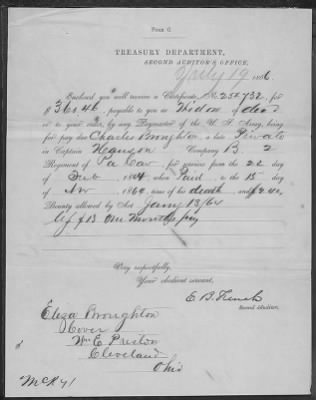 FORM G.
TREASURY DEPARTMENT,
SECOND AUDITOR'S OFFICE,
July 19 1866
Enclosed you will receive a Certificate, No. 252,732, for
$36.46, payable to you as Widow of decd
or to your order, by any Paymaster of the U. S. Army, being
for due Charles Broughton, a late Private
in Captain Company B. 2
Regiment of Pa Cav for services from the 22 day
of Feb, 1864 when Paid, to the 15 day
of Nov, 1864, time of his death, and
Bounty allowed by Act
one months pay
Very respectfully,
Your obedient servant,
E B French
Second Auditor.
Eliza Broughton
Cover
Wm E Preston
Cleveland
Ohio